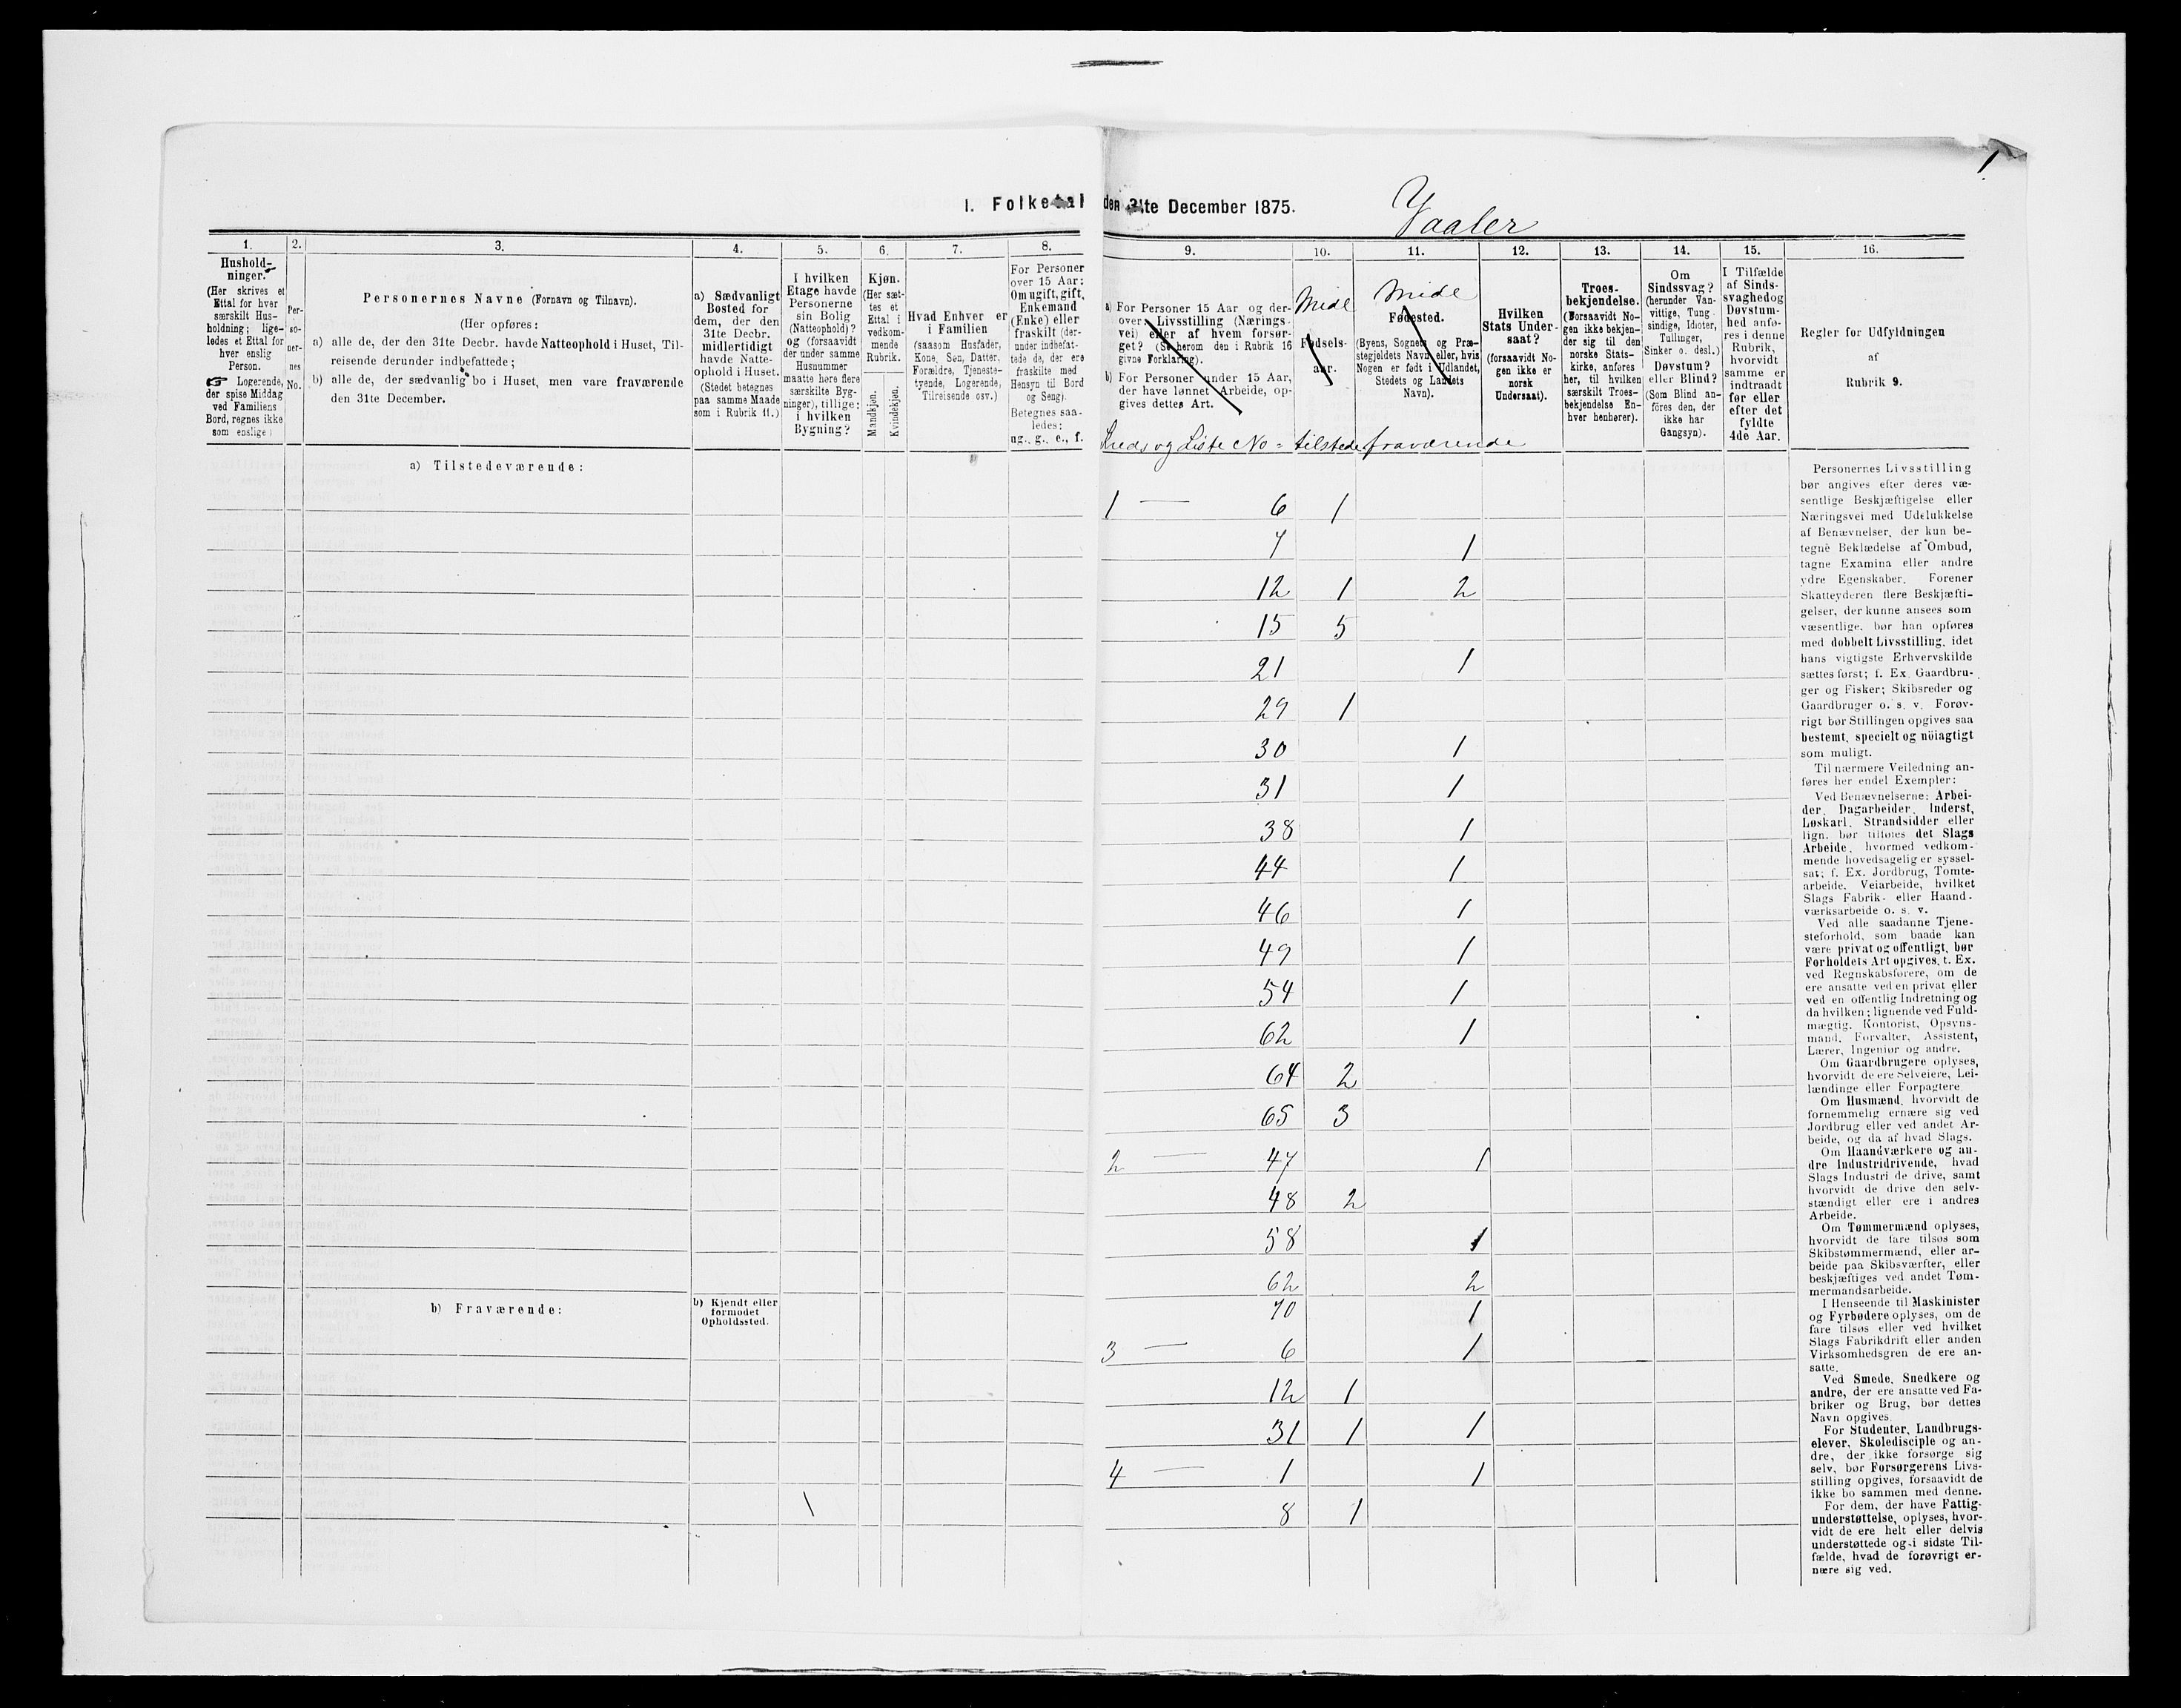 1
I. Folketal den 31te December 1875.
Vaaler
1.
2.
3.
4.
5.
6.
7.
8.
9.
10.
11.
12.
13.
14.
15.
16.
Hushold-
ninger.
(Her skrives et
Ettal for hver
særskilt Hus-
holdning; lige-
ledes et Ettal for
hver enslig
Person.
☞ Logerende,
der spise Middag
ved Familiens
Bord, regnes ikke
som enslige)
Per-
so-
ner-
nes
No.
Personernes Navne (Fornavn og Tilnavn).
(Her opføres:
a) alle de, der den 31te Decbr. havde Natteophold i Huset, Til-
reisende derunder indbefattede;
b) alle de, der sædvanlig bo i Huset, men vare fraværende
den 31te December.
a) Sædvanligt
Bosted for
dem, der den
31te Decbr.
midlertidigt
havde Natte-
ophold i Huset.
(Stedet betegnes
paa samme Maade
som i Rubrik 11.)
I hvilken
Etage havde
Personerne
sin Bolig
(Natteophold)?
og (forsaavidt
der under samme
Husnummer
maatte høre flere
særskilte Byg-
ninger), tillige:
i hvilken
Bygning?
Kjøn.
(Her sæt-
tes et
Ettal i
vedkom-
mende
Rubrik.
Mandkjøn.
Kvindekjøn.
Hvad Enhver er
i Familien
(saasom Husfader,
Kone, Søn, Datter,
Forældre, Tjeneste-
tyende, Logerende,
Tilreisende osv.)
For Personer
over 15 Aar:
Om ugift, gift,
Enkemand
(Enke) eller
fraskilt (der-
under indbefat-
tede de, der ere
fraskilte med
Hensyn til Bord
og Seng).
Betegnes saa-
ledes:
ug., g., e., f.
a) For Personer 15 Aar og der-
over: Livsstilling (Nærings-
vei) eller af hvem forsør-
get? (Se herom den i Rubrik 16
givne Forklaring).
b) For Personer under 15 Aar,
der have lønnet Arbeide, op-
gives dettes Art.
Midl
Fødsels-
aar.
Midl
Fødested.
(Byens, Sognets og Præ-
stegjeldets Navn eller, hvis
Nogen er født i Udlandet,
Stedets og Landets
Navn).
Hvilken
Stats Under-
saat?
(forsaavidt No-
gen ikke er
norsk
Undersaat).
Troes-
bekjendelse.
(Forsaavidt No-
gen ikke bekjen-
der sig til den
norske Stats-
kirke, anføres
her, til hvilken
særskilt Troes-
bekjendelse En-
hver henhører).
Om
Sindssvag?
(herunder Van-
vittige, Tung-
sindige, Idioter,
Tullinger,
Sinker o. desl.)
Døvstum?
eller Blind?
(Som Blind an-
føres den, der
ikke har
Gangsyn).
I Tilfælde
af Sinds-
svaghedog
Døvstum-
hed anfø-
res i denne
Rubrik,
hvorvidt
samme er
indtraadt
før eller
efter det
fyldte
4de Aar.
Regler for Udfyldningen
af
Rubrik 9.
Kreds og Liste No = tilstede fraværende
a) Tilstedeværende:
1 — 6 1
7 1
12 1 2
15 5
21 1
29 1
30 1
31 1
38 1
44 1
46 1
49 1
54 1
62 1
64 2
65 3
2 — 47 1
48 2
58 1
62 2
b) Fraværende:
b) Kjendt eller
formodet
Opholdssted.
70 1
3 — 6 1
12 1
31 1 1
4 — 1 1
8 1
Personernes Livsstilling
bør angives efter deres væ-
sentlige Beskjæftigelse eller
Næringsvei med Udelukkelse
af Benævnelser, der kun be-
tegne Beklædelse af Ombud,
tagne Examina eller andre
ydre Egenskaber. Forener
Skatteyderen flere Beskjæfti-
gelser, der kunne ansees som
væsentlige, bør han opføres
med dobbelt Livsstilling, idet
hans vigtigste Erhvervskilde
sættes først; f. Ex. Gaardbru-
ger og Fisker; Skibsreder og
Gaardbruger o. s. v. Forøv-
rigt bør Stillingen opgives saa
bestemt, specielt og nöiagtigt
som muligt.
Til nærmere Veiledning an-
føres her endel Exempler:
Ved Benævnelserne: Arbei-
der, Dagarbeider, Inderst,
Løskarl, Strandsidder eller
lign. bør tilføies det Slags
Arbeide, hvormed vedkom-
mende hovedsagelig er syssel-
sat; f. Ex. Jordbrug, Tomte-
arbeide, Veiarbeide, hvilket
Slags Fabrik- eller Haand-
værksarbeide o. s. v.
Ved alle saadanne Tjene-
steforhold, som baade kan
være privat og offentligt, bør
Forholdets Art opgives, t. Ex.
ved Regnskabsførere, om de
ere ansatte ved en privat eller
ved en offentlig Indretning og
da hvilken; lignende ved Fuld-
mægtig, Kontorist, Opsyns-
mand, Forvalter, Assistent,
Lærer, Ingeniør og andre.
Om Gaardbrugere oplyses,
hvorvidt de ere Selveiere, Lei-
lændinge eller Forpagtere
Om Husmænd, hvorvidt de
fornemmelig ernære sig ved
Jordbrug eller ved andet Ar-
beide, og da af hvad Slags.
Om Haandværkere og an-
dre Industridrivende, hvad
Slags Industri de drive, samt
hvorvidt de drive den selv-
stændigt eller ere i andres
Arbeide.
Om Tømmermænd oplyses,
hvorvidt de fare tilsøs som
Skibstømmermænd, eller ar-
beide paa Skibsværfter, eller
beskjæftiges ved andet Tøm-
mermandsarbeide.
I Henseende til Maskinister
og Fyrbødere oplyses, om de
fare tilsøs eller ved hvilket
Slags Fabrikdrift eller anden
Virksomhedsgren de ere an-
satte.
Ved Smede, Snedkere og
andre, der ere ansatte ved Fa-
briker og Brug, bør dettes
Navn opgives.
For Studenter, Landbrugs-
elever, Skoledisciple og an-
dre, der ikke forsørge sig
selv, bør Forsørgerens Livs-
stilling opgives, forsaavidt de
ikke bo sammen med denne.
For dem, der have Fattig-
understøttelse, oplyses, hvor-
vidt de ere helt eller delvis
understøttede og i sidste Til-
fælde, hvad de forøvrigt er-
nære sig ved.